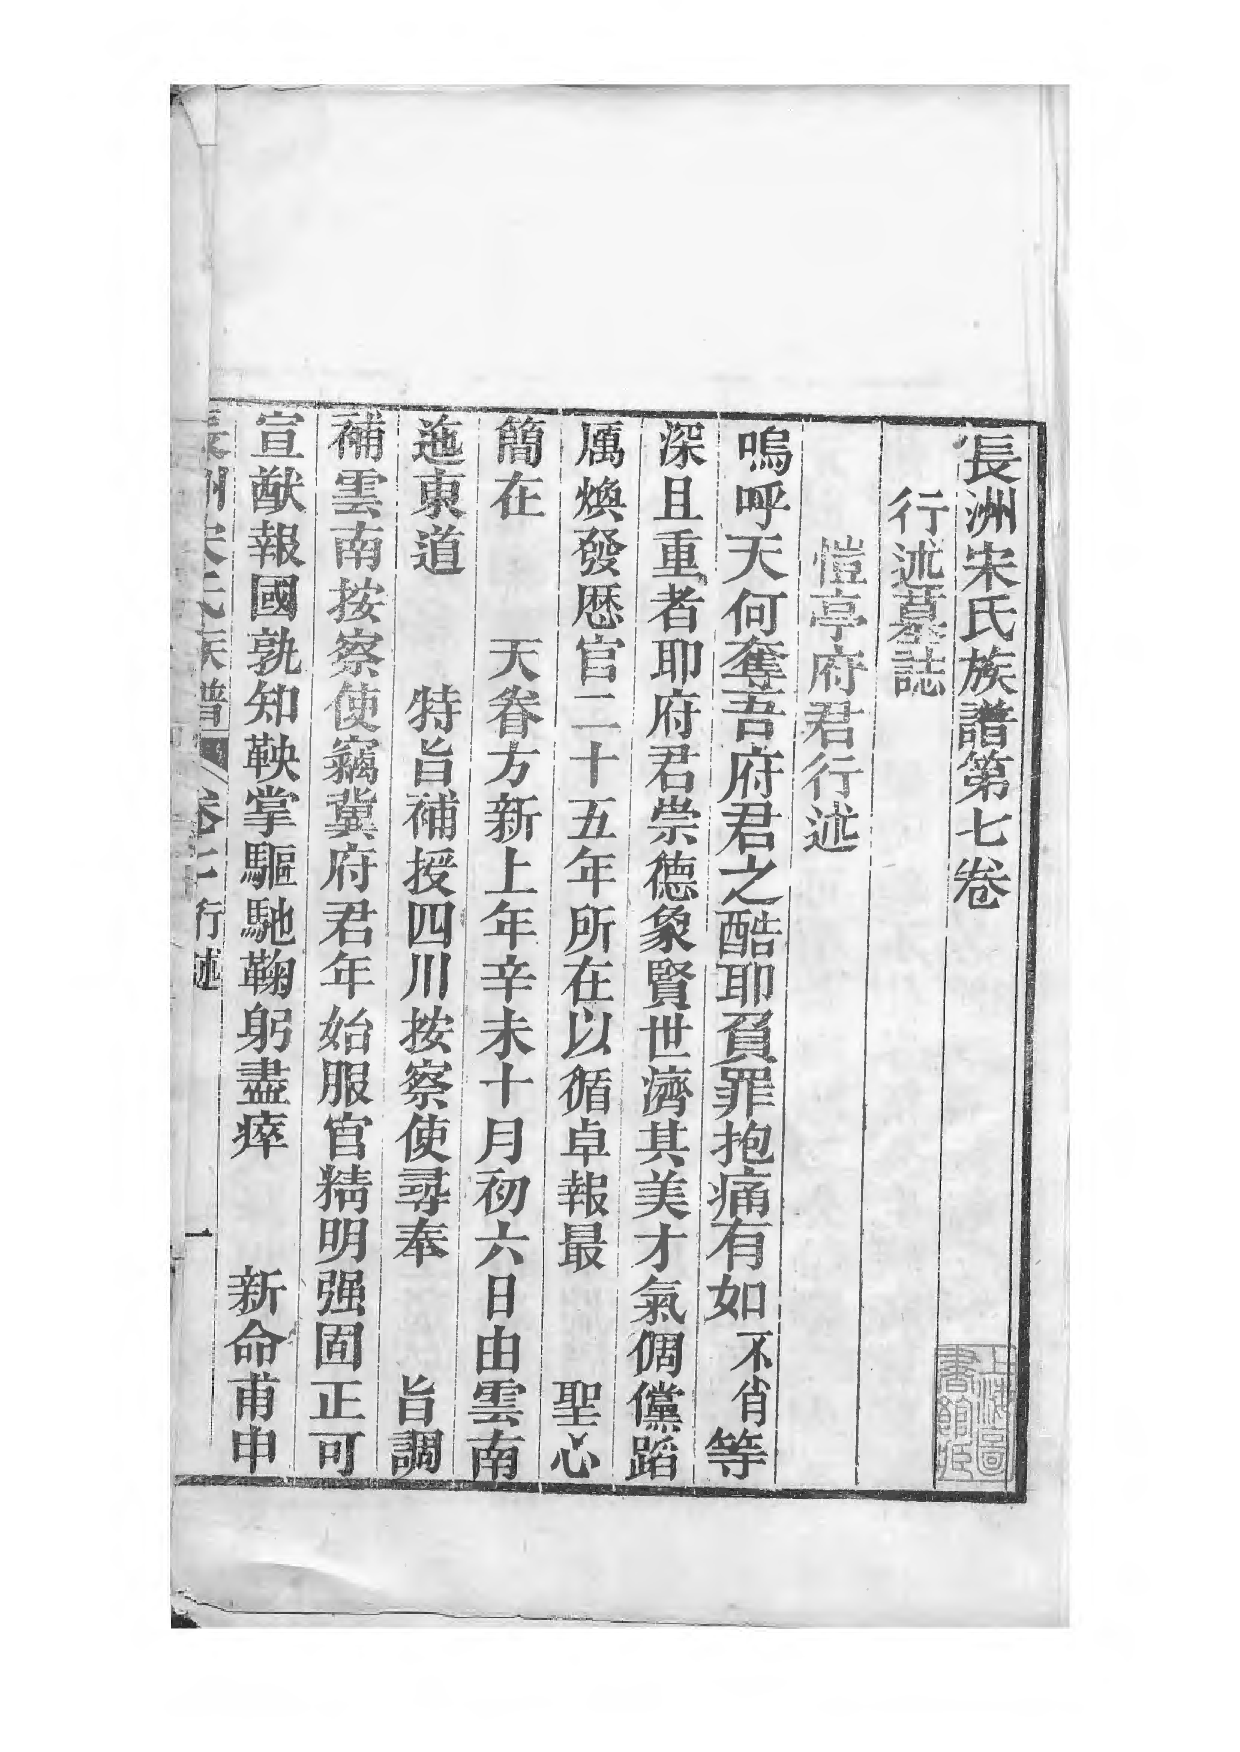 長洲宋氏族譜第七卷
行述墓誌
愷亭府君行述
嗚呼天何奪吾府君之酷耶負罪抱痛有如不肖等
深且重者耶府君崇德象賢世濟其美才氣倜儻蹈
厲煥發歷官二十五年所在以循卓報最 聖心
簡在 天眷方新上年辛未十月初六日由雲南
迤東道 特旨補授四川按察使尋奉 旨調
補雲南按察使竊冀府君年始服官精明强固正可
宣猷報國孰知鞅掌驅馳鞠躬盡瘁 新命甫申
長洲宋氏族譜 卷七 行述 一
上海圖書館藏